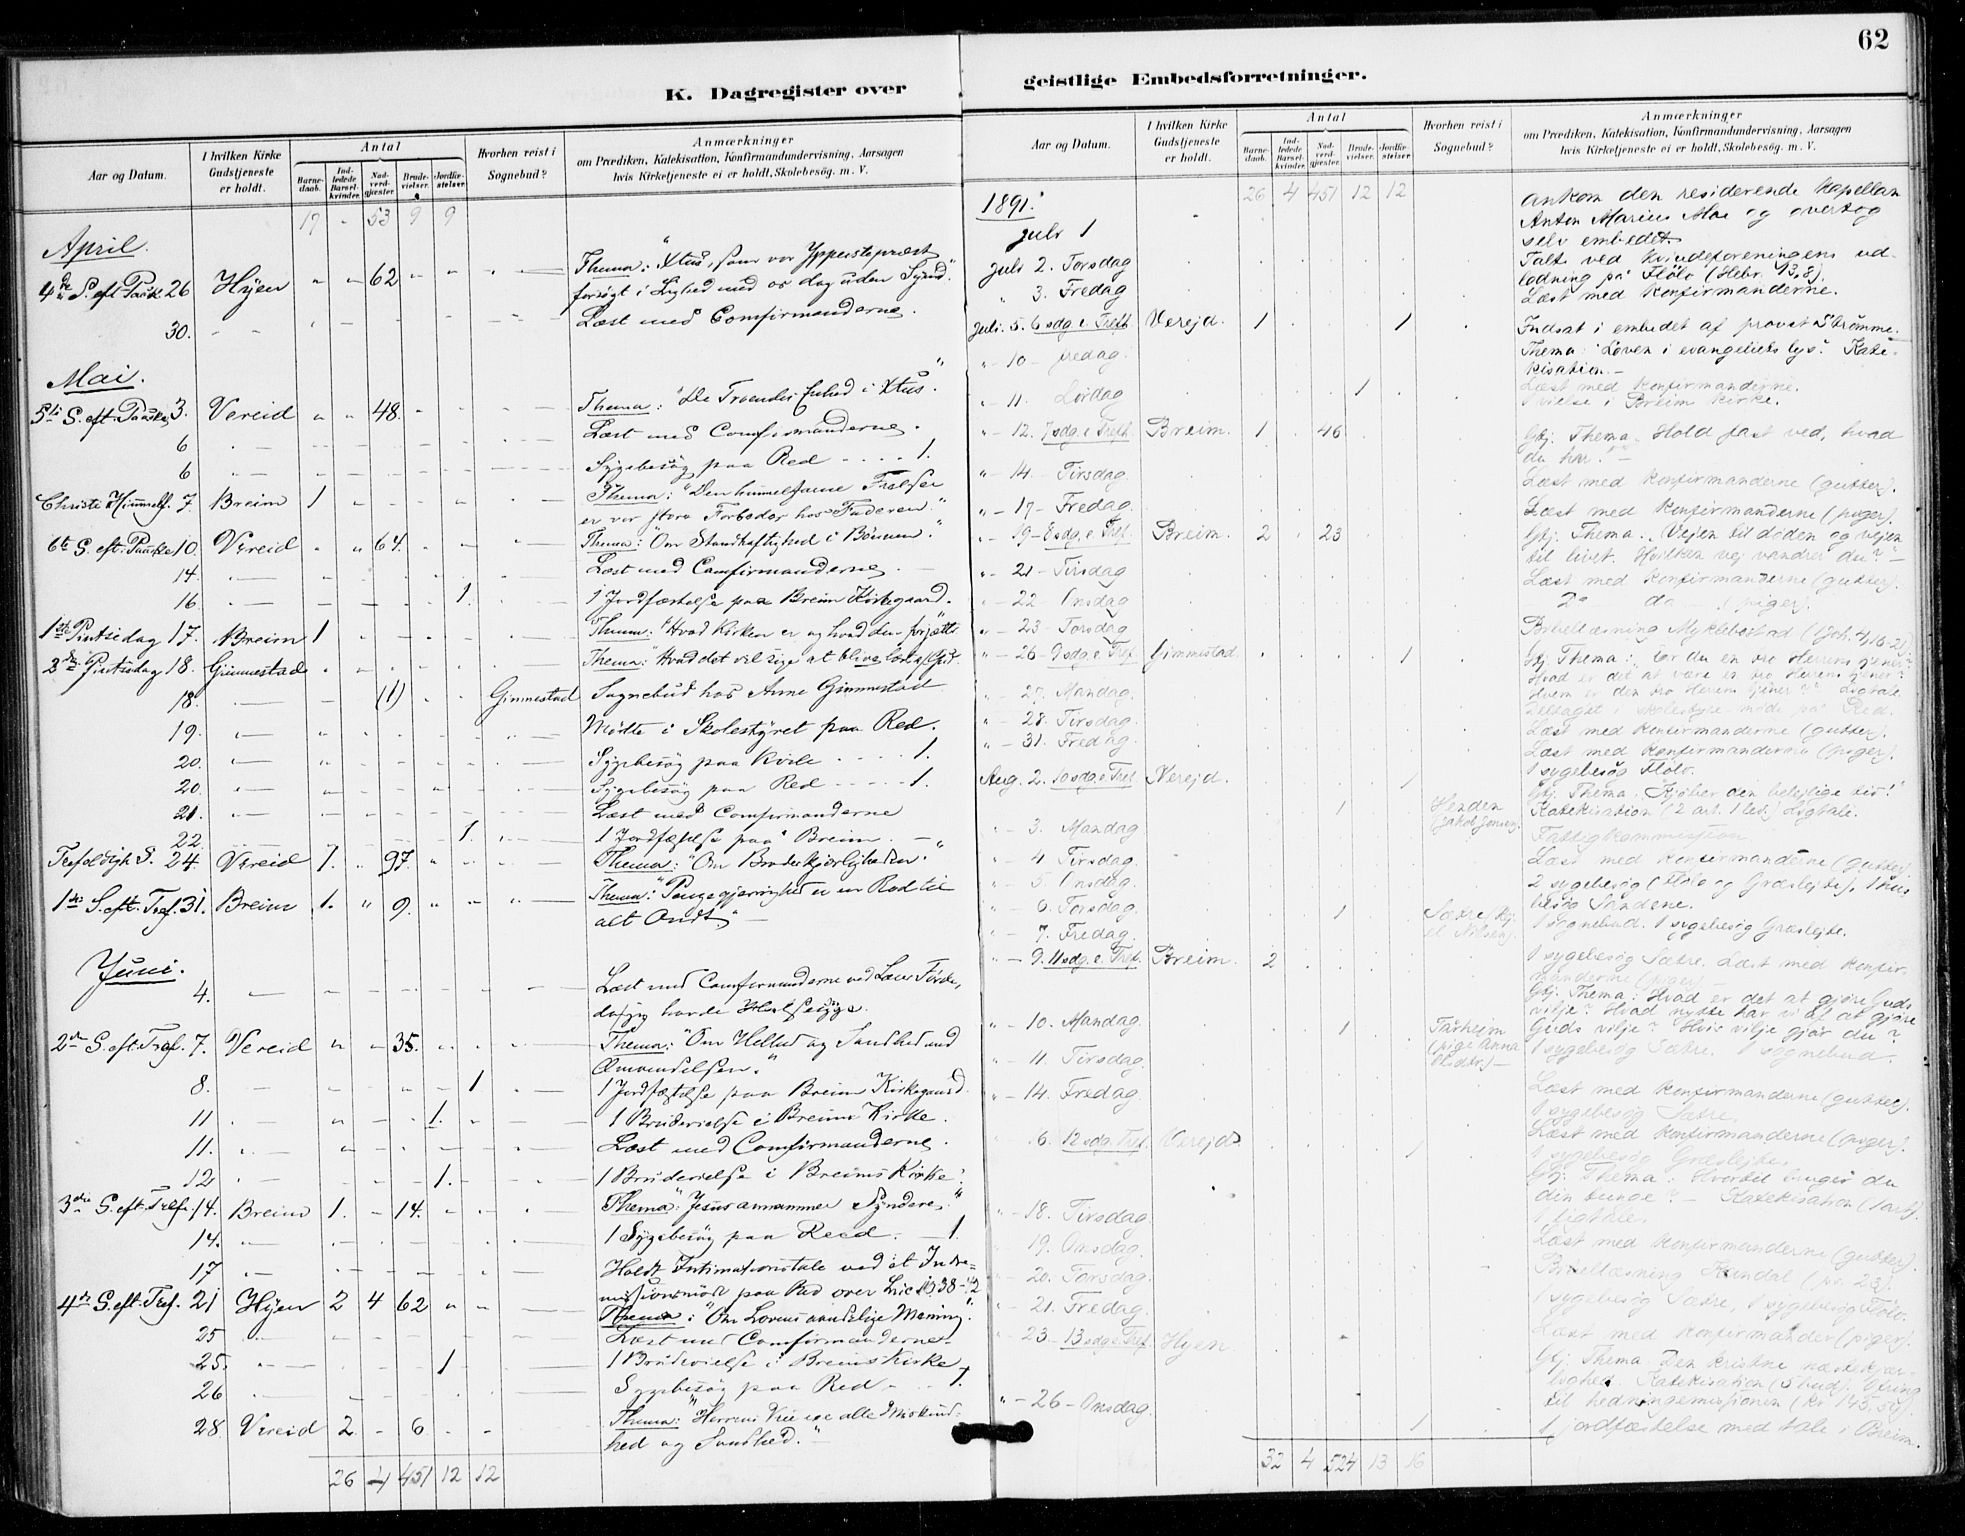 62
K. Dagregister over
geistlige Embedsforretninger.
Aar og Datum.
I hvilken Kirke Gudstjeneste er holdt.
Antal
Barnedaab.
Indledede Barselkvinder.
Nadverdgjester
Brudevielser.
Jordfæstelser
Hvorhen reist i Sognebud?
Anmærkninger
om Prædiken, Katekisation, Konfirmandundervisning, Aarsagen
hvis Kirketjeneste ei er holdt, Skolebesøg. m. V.
17 - 53 9 9
April.
4de S. eft. Paask 26 Hyen " " 62 Thema: "Xtus, som vor Ypperstepræst
forsøgt i Lighed med os dog uden Synd."
30. Læst med Comfirmanderne.
Mai.
5te S. eft. Paaske 3. Vereid " " 48. Thema: "De Troendes Enhed i Xtus."
6 Læst med Comfirmanderne.
6 Sygebesøg paa Red - - - - 1.
Christi Himmelf. 7. Breim 1 Thema: "Den himmelfarne Frelser
er vor store Forbeder hos Faderen."
6te S. eft. Paaske 10. Vereid " " 64. Thema: "Om Standhaftighed i Bønnen."
14. Læst med Comfirmanderne
16. 1. 1 Jordfæstelse paa Breim Kirkegaard.
1ste Pintsedag 17. Breim 1 Thema: "Hvad Kirken er og hvad den
2den Pintsedag 18. Gimmestad Thema: "Hvad det vil sige at blive lært af Gud.
18. (1) Gimmestad Sognebud hos Arne Gimmestad
19. Mødte i Skolestyret paa Red.
20. Sygebesøg paa Kvile - - - - 1.
20. Sygebesøg paa Red - - - - 1.
21. Læst med Comfirmanderne
22. 1. 1 Jordfæstelse paa Breim
Trefoldigh S. 24. Vereid 1. " 97. Thema: "Om Broderkjærligheden."
1ste S. eft. Tref. 31. Breim 1. " 9. Thema: "Pengegjerrighed er en Rod til
alt Ondt"
Juni.
4. Læst med Comfirmanderne ved Lærer Førde,
da jeg havde Halssyge.
2den S. eft. Tref. 7. Vereid " - 35. Thema: "Om
Omvendelsen."
8. 1 1 Jordfæstelse paa Breim Kirkegaard.
11 1. 1 Brudevielse i Breims Kirke.
11. Læst med Comfirmanderne.
12 1. 1 Brudevielse i Breims Kirke.
3die S. eft. Tref. 14. Breim 1. - 14. Thema: "Jesus annammer Syndere."
14. 1 Sygebesøg paa Reed. - 1.
17 Holdt ved et Indre-
missionsmøde paa Red over
4de S. eft. Tref. 21 Hyen 2 4 62 Thema: "Om Lovens aandelige Mening".
25 Læst med Comfirmanderne
25. 1 1 Brudevielse i Breims Kirke
26 Sygebesøg paa Red - - 1.
28 Vereid 2 - 6 Thema: "Herrens Veie ere alle Miskund-
hed og Sandhed."
26 4 451 12 12
Aar og Datum.
I hvilken Kirke Gudstjeneste er holdt.
Antal
Barnedaab.
Indledede Barselkvinder.
Nadverdgjester
Brudevielser.
Jordfæstelser
Hvorhen reist i Sognebud?
Anmærkninger
om Prædiken, Katekisation, Konfirmandundervisning, Aarsagen
hvis Kirketjeneste ei er holdt, Skolebesøg. m. V.
26 4 451 12 12
1891.
Juli 1 ankom den residerende Kapellan
Anton Marius Moe og overtog
selv embedet.
Juli 2. Torsdag Talt ved kvindeforeningens ud-
lodning på Flølo (Hebr. 13,8).
" 3. Fredag Læst med Konfirmanderne.
Juli. 5. 6 sdg. e. Tref. Verejd. 1 1 Indsat i embedet af provst Strømme.
Thema: Loven i evangeliets lys. Kate-
kisation.-
" - 10 - fredag. Læst med Konfirmanderne.
" - 11. Lørdag 1 Vielse i Breim Kirke.
" - 12. 7 sdg. e. Tref. Breim. 1 46 Gtj. Thema. Hold fast ved, hvad
du har.
" - 14. Tirsdag Læst med Konfirmanderne (gutter).
" - 17 - Fredag. Læst med Konfirmanderne (piger).
" - 19 - 8 sdg. e. Tref. Breim. 2 23 Gtj. Thema. Vejen til døden og vejen
til livet. Hvilken vej vandrer du?
" - 21 - Tirsdag Læst med Konfirmanderne (gutter).
" - 22 - Onsdag Do - do - (piger).
" - 23 - Torsdag Bibellæsning Myklebostad
" - 26 - 9 sdg. e. Tref. Gimmestad. 1 Gtj. Thema: Er du en tro Herrens tjener?
Hvad er det at være en tro Herrens tjener?
Hvem er den tro Herrens tjener? Ligtale.
" - 27. Mandag. Deltaget i skolestyre-møde på Red.
" - 28. Tirsdag. Læst med Konfirmanderne (gutter).
" - 31. Fredag. Læst med Konfirmanderne (piger).
1 sygebesøg Flølo.
Aug. 2. 10 sdg. e. Tref. Verejd. 1 Gtj. Thema. Kjøber den belejlige tid!
Katekisation (2 art. 1 led.) Ligtale.
" - 3. Mandag. 1 Henden (Jakob Jonsen). Fattigkommission
" - 4 Tirsdag. Læst med Konfirmanderne (gutter).
" - 5. Onsdag. 2 sygebesøg (Flølo og Græslejte), 1 hus
besøg Sandene.
" - 6. Torsdag. 1 Sætre 1 sognebud. 1 sygebesøg Græslejte.
" - 7. Fredag. 1 sygebesøg Sætre. Læst med Konfir-
manderne (piger).
" - 9. 11 sdg. e. Tref. Breim. 2 Gtj. Thema: Hvad er det at gjøre Guds
vilje? Hvad nytte har vi af at gjøre
Guds vilje? Hvis vilje gjør du?
" - 10. Mandag. 1 Tårheim (pige Anna 1 sygebesøg Sætre. 1 sognebud.
" - 11. Tirsdag. Læst med Konfirmanderne (gutter).
1 sygebesøg Sætre.
" - 14. Fredag. Læst med Konfirmanderne (piger).
1 sygebesøg Græslejte.
" 16. 12 sdg. Tref. Verejd. 1 Gtj. Thema: Hvortil bruger du
din tunge? - Katekisation (1 art).
1 ligtale.
" - 18. Tirsdag. Læst med Konfirmanderne (gutter).
" 19. Onsdag. Bibellæsning
" - 20. Torsdag. 1 sygebesøg Sætre, 1 sygebesøg Flølo.
" - 21. Fredag. Læst med Konfirmander (piger).
" - 23 - 13 sdg. e. Tref. Hyen. Gtj. Thema. Den kristne næstekjær-
lighed. Katekisation (5 bud). Ofring
til hedningemissionen
" - 26 - Onsdag. 1 1 jordfæstelse med tale i Breim.
32 4 524 13 16